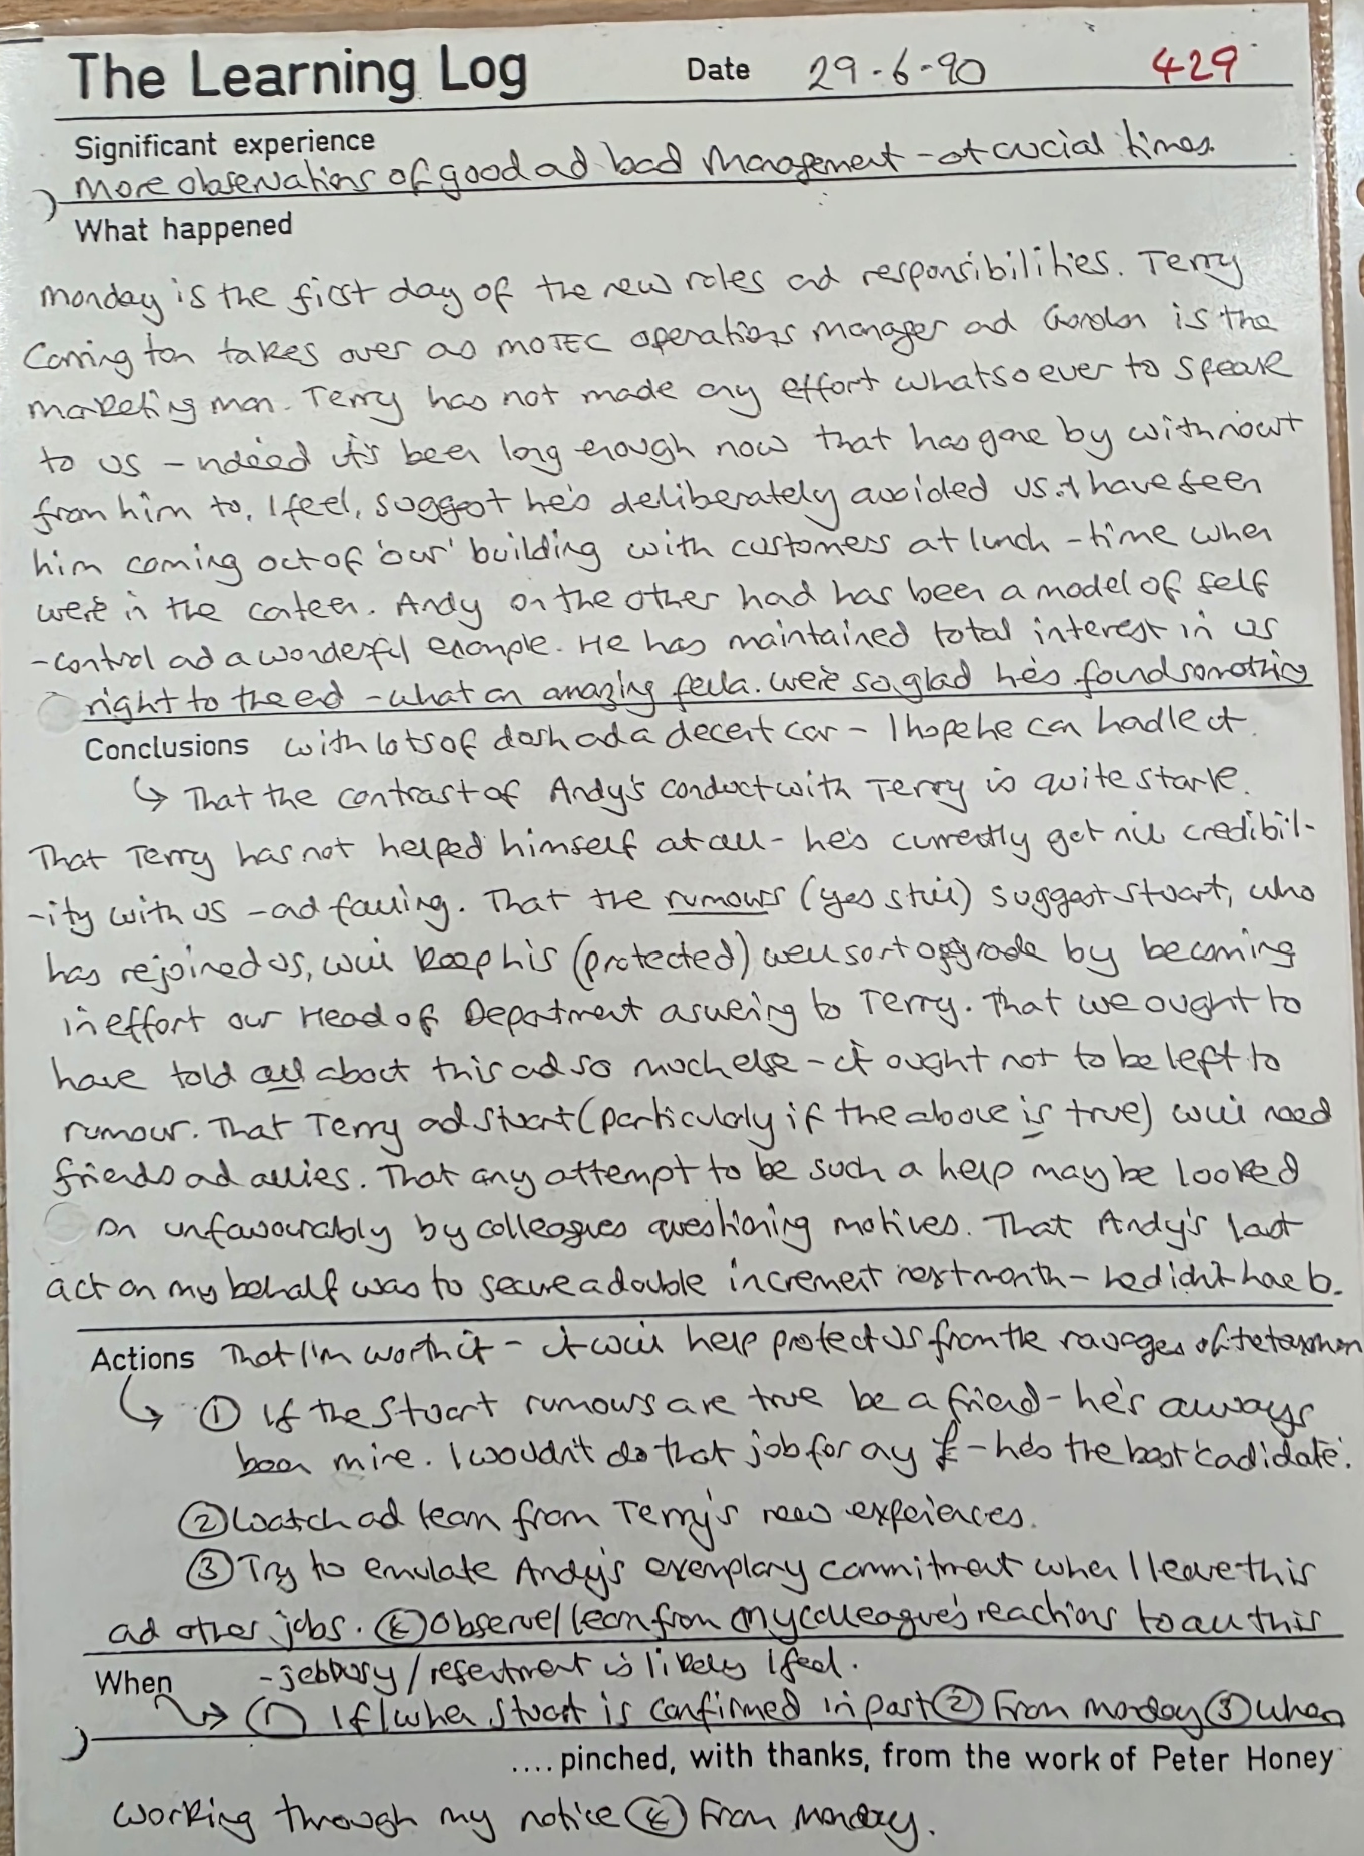 The Learning Log Date 29-6-90 429
Significant experience
More observations of good ad bad management - at crucial times.
What happened
Monday is the first day of the new roles ad responsibilities. Terry
Carrington takes over as MOTEC operations manager ad Gordon is the
marketing man. Terry has not made any effort whatsoever to speak
to us - indeed it's been long enough now that has gone by with nowt
from him to, I feel, suggest he's deliberately avoided us. I have seen
him coming out of 'our' building with customers at lunch-time when
we're in the canteen. Andy on the other hand has been a model of self
-control ad a wonderful example. He has maintained total interest in us
right to the end - what an amazing fella. We're so glad he's found something
Conclusions with lots of dosh ad a decent car - I hope he can handle it.
↳ That the contrast of Andy's conduct with Terry is quite stark.
That Terry has not helped himself at all - he's currently got nil credibil-
-ity with us - ad falling. That the rumours (yes still) suggest Stuart, who
has rejoined us, will keep his (protected) well sort of grade by becoming
in effort our Head of Department answering to Terry. That we ought to
have told all about this ad so much else - it ought not to be left to
rumour. That Terry ad Stuart (particularly if the above is true) will need
friends ad allies. That any attempt to be such a help may be looked
on unfavourably by colleagues questioning motives. That Andy's last
act on my behalf was to secure a double increment next month - he didn't have to.
Actions That I'm worth it - it will help protect us from the ravages of the taxman
↳ ① If the Stuart rumours are true be a friend - he's always
been mine. I wouldn't do that job for any £ - he's the best 'candidate'.
② Watch ad learn from Terry's new experiences.
③ Try to emulate Andy's exemplary commitment when I leave this
ad other jobs. ④ Observe/learn from my colleague's reactions to all this
- jealousy/resentment is likely I feel.
When
→ ① If/when Stuart is confirmed in post ② From Monday ③ When
.... pinched, with thanks, from the work of Peter Honey
working through my notice ④ From Monday.